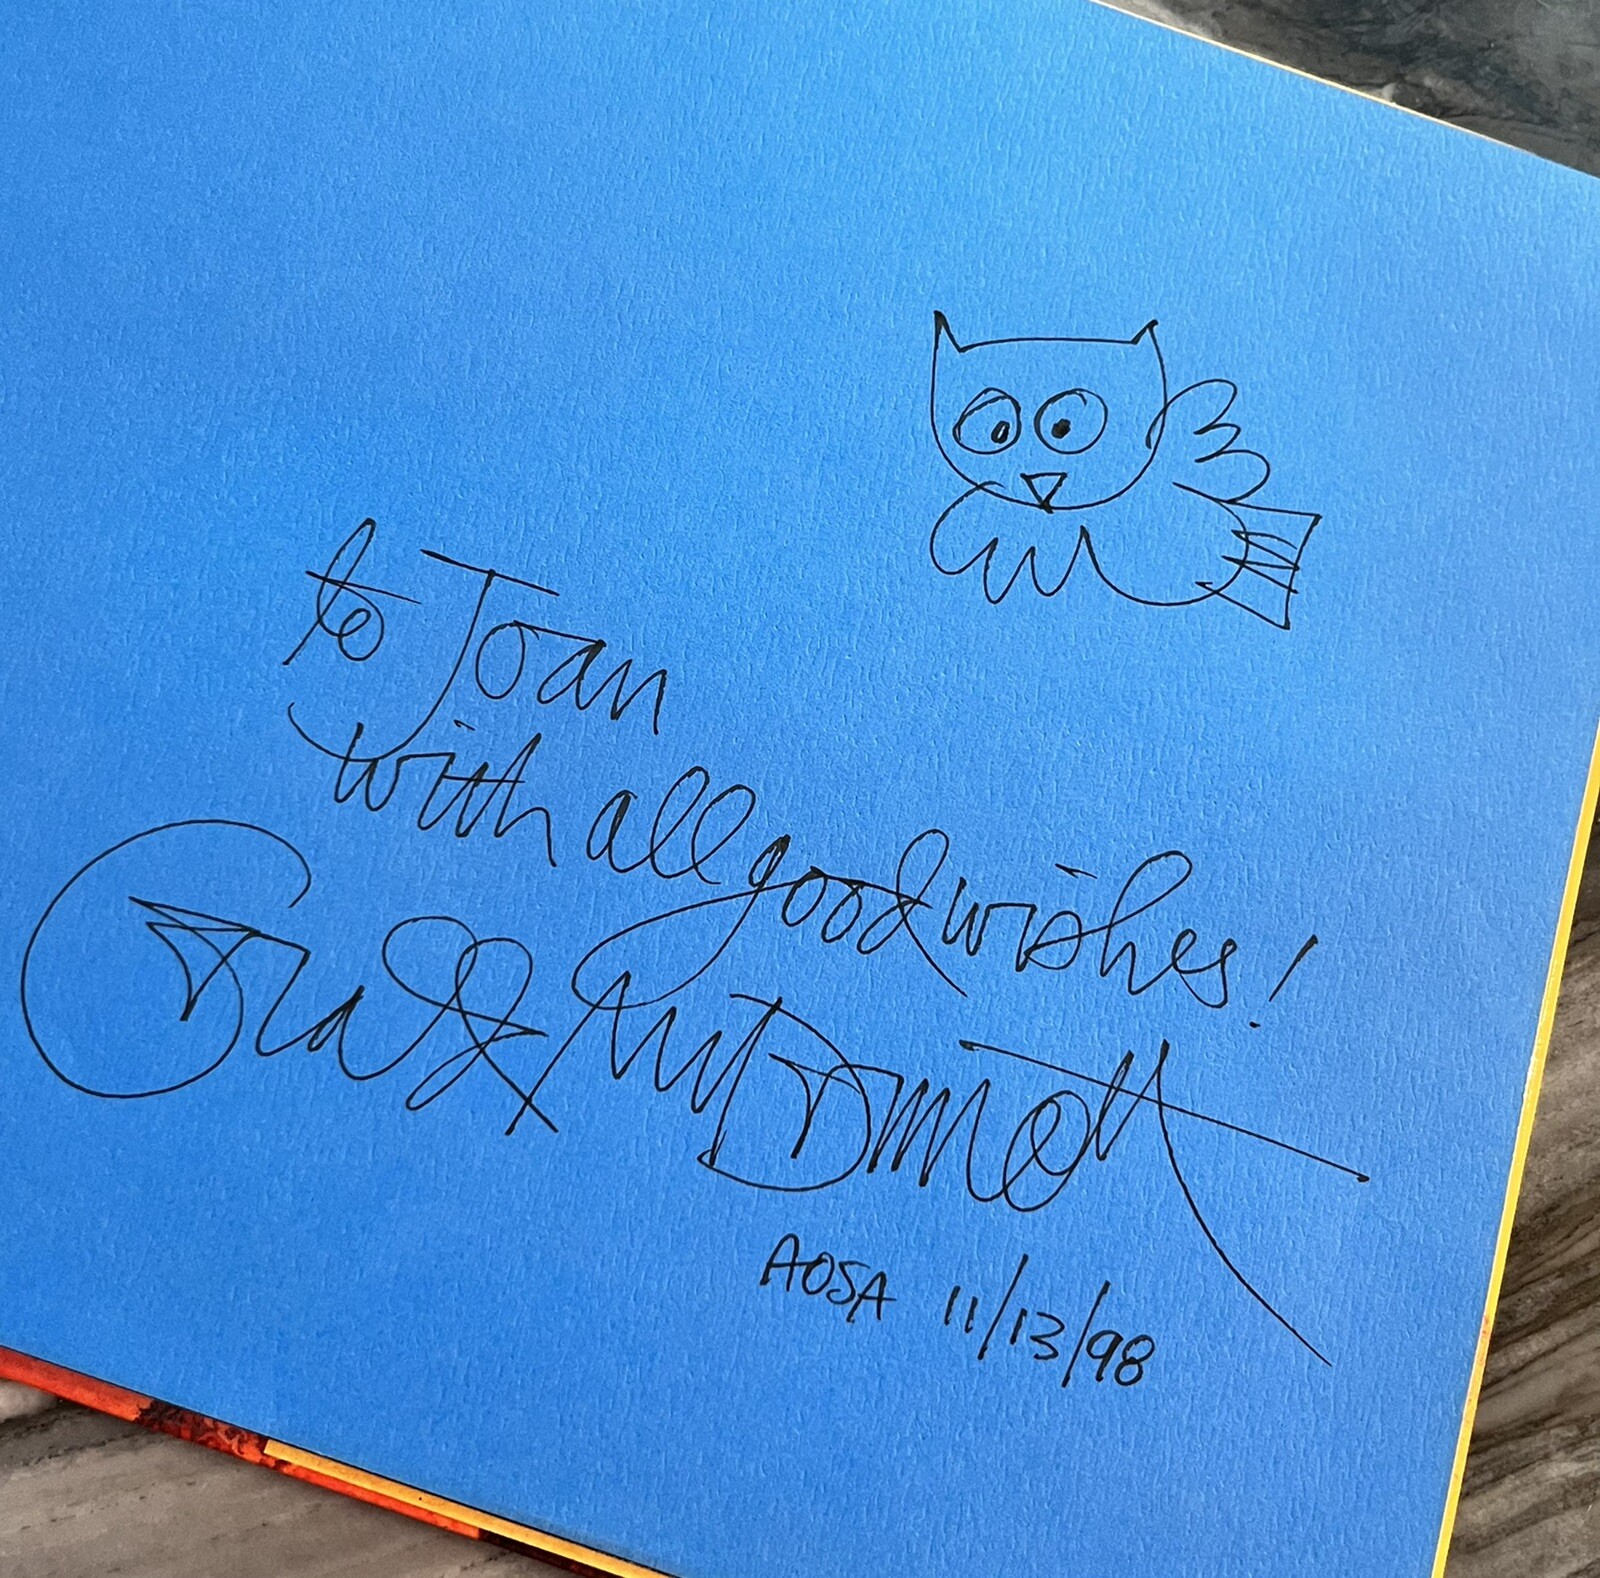 to Joan
with all good wishes!
Gerald McDermott
AOSA 11/13/98